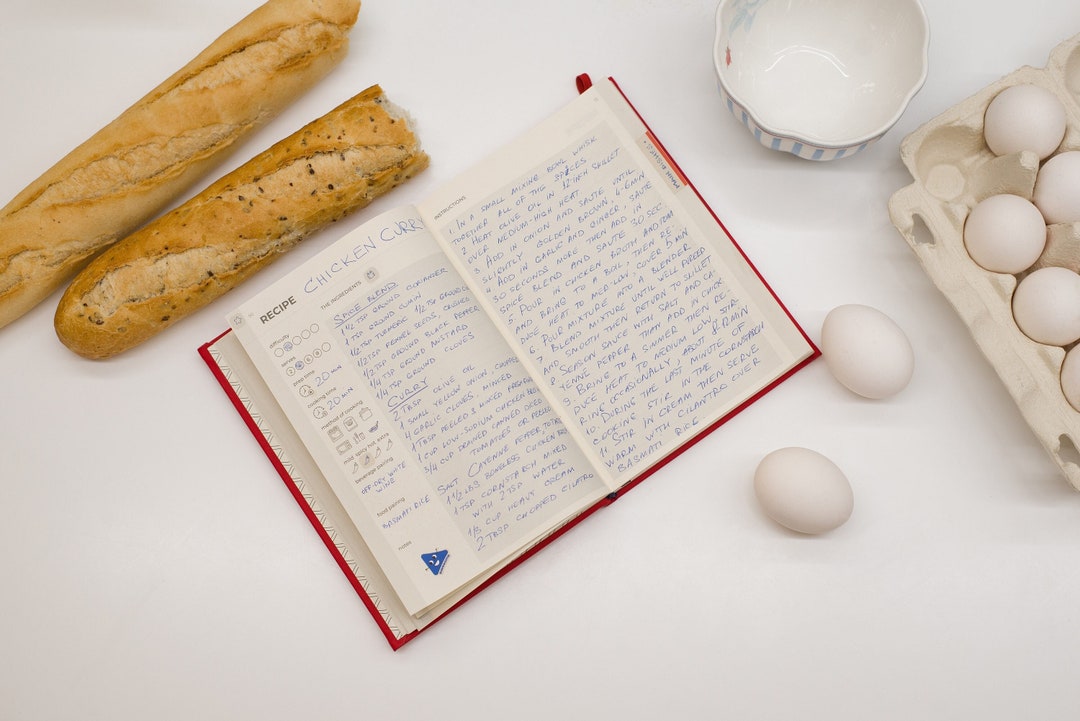 RECIPE CHICKEN CURRY
difficulty
serves
prep time
20 MIN
cooking time
20 MIN
method of cooking
mild spicy hot extra
beverage pairing
OFF-DRY WHITE
WINE
food pairing
BASMATI RICE
notes
THE INGREDIENTS
SPICE BLEND
1 1/2 TSP GROUND CORIANDER
1 TSP GROUND CUMIN
1/2 TSP FENNEL SEEDS CRUSHED
1/2 TSP GROUND BLACK PEPPER
1/4 TSP GROUND MUSTARD
1/4 TSP GROUND CLOVES
CURRY
2 TBSP OLIVE OIL
1 SMALL YELLOW ONION CHOPPED
4 GARLIC CLOVES, MINCED
1 TBSP PEELED & MINCED FRESH
1 CUP LOW-SODIUM CHICKEN
3/4 CUP DRAINED CANNED DICED
TOMATOES OR PEELED
SALT CAYENNE PEPPER, TO
1 1/2 LBS BONELESS CHICKEN
1 TSP CORNSTARCH MIXED
WITH 2 TSP WATER
1/3 CUP HEAVY CREAM
2 TBSP CHOPPED CILATRO
INSTRUCTIONS
1. IN A SMALL MIXING BOWL WHISK
TOGETHER ALL OF THE SPICES
2. HEAT OLIVE OIL IN 12 INCH SKILLET
OVER MEDIUM-HIGH HEAT
3. ADD IN ONION AND SAUTE UNTIL
SLIGHTLY GOLDEN BROWN, 4-6 MIN
4. ADD IN GARLIC AND GINGER SAUTE
30 SECONDS MORE THEN ADD IN
SPICE BLEND AND SAUTE 30 SEC.
5. POUR IN CHICKEN BROTH AND TOM
AND BRING TO A BOIL, THEN RE
DUCE HEAT TO MER-LOW, COVER 5 MIN
6. POUR MIXTURE INTO A BLENDER
7. BLEND MIXTURE UNTIL WELL PUREED
AND SMOOTH THEN RETURN TO SKILLET
8. SEASON SAUCE WITH SALT AND CA
YENNE PEPPER THAN ADD IN CHICK.
9. BRING TO A SIMMER THEN RE
DUCE HEAT TO MEDIUM LOW, STIR-
RING OCCASIONALLY ABOUT 8-12 MIN
10. DURING THE LAST MINUTE OF
COOKING STIR IN THE CORNSTARCH
11. STIR IN CREAM THEN SERVE
WARM WITH CILANTRO OVER
BASMATI RICE
MAIN DISHES